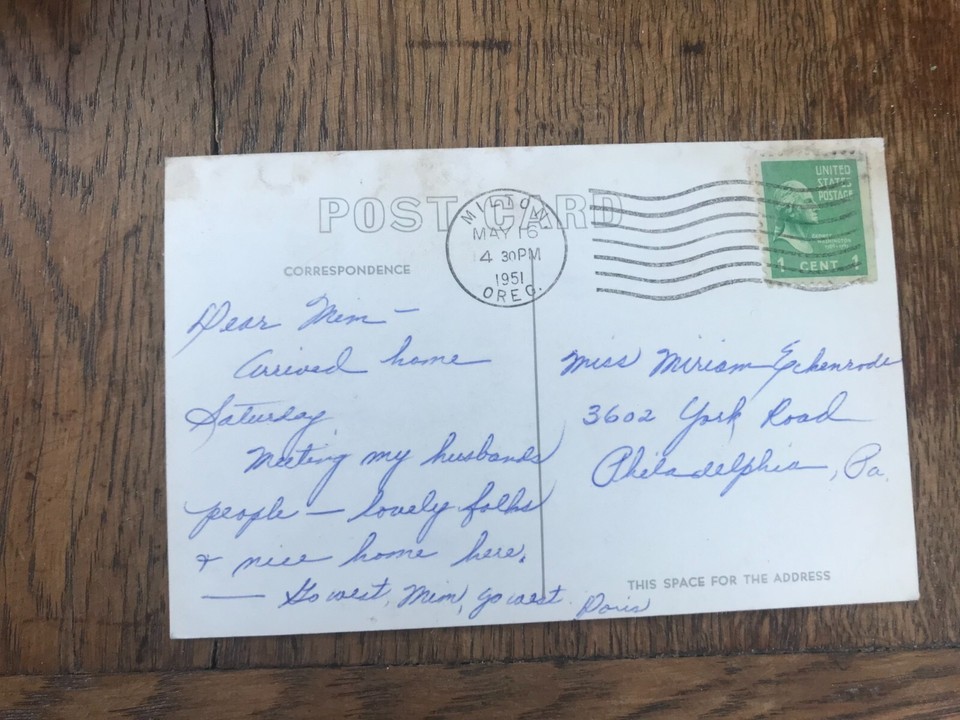 POST CARD
MILTON
MAY 16
4 30PM
1951
OREG.
UNITED
STATES
POSTAGE
GEORGE
WASHINGTON
1 CENT 1
CORRESPONDENCE
Dear Mim —
Arrived home
Saturday
Meeting my husbands
people — lovely folks
& nice home here.
— Go west, Mim, go west
Doris
Miss Miriam Eckenrode
3602 York Road
Philadelphia, Pa.
THIS SPACE FOR THE ADDRESS